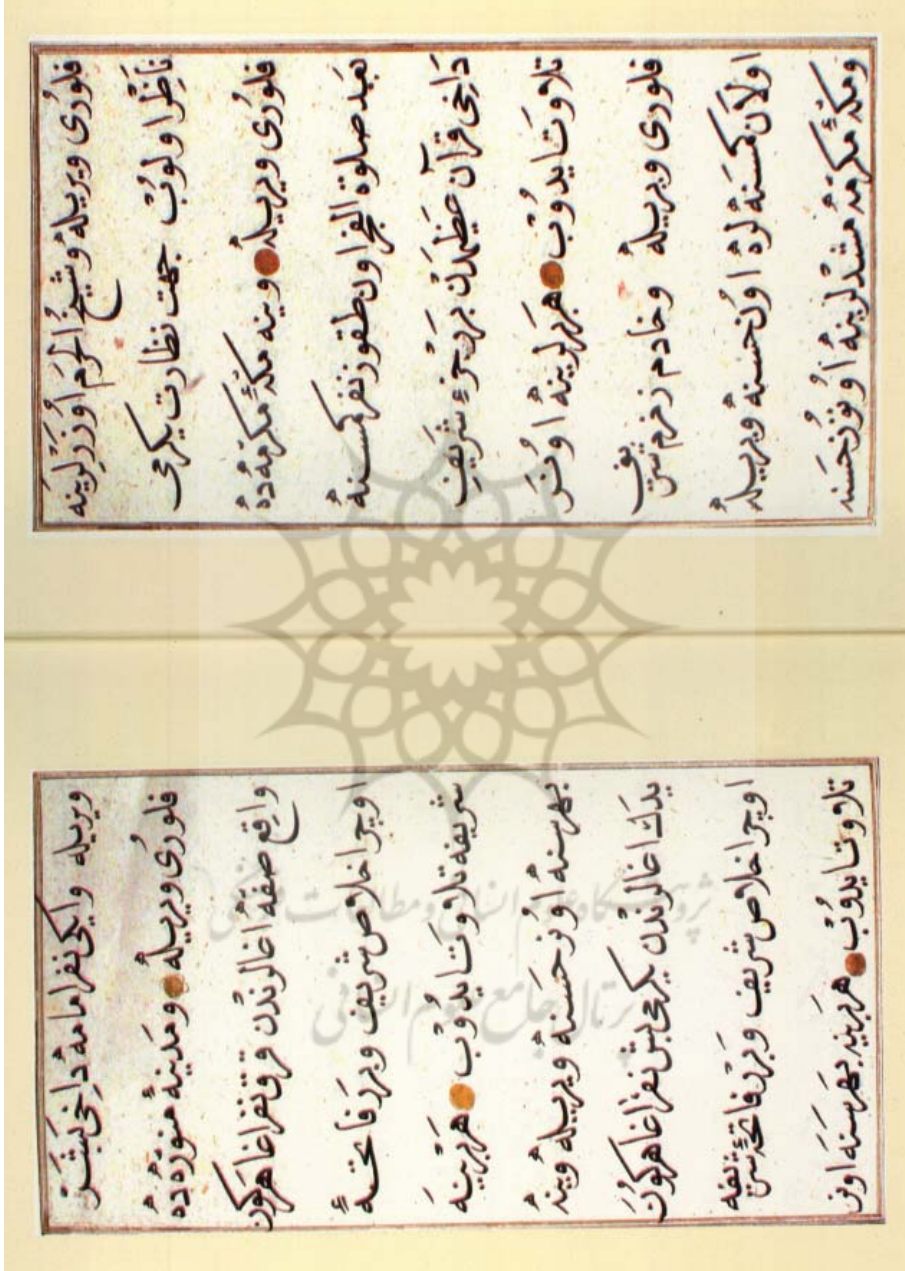 فلوری ویریله و شیخ الحرم اوزرلرینه
ناظر اولوب جهت نظارت یکرمی
فلوری ویریله وینه مکهٔ مکرمه ده
بعد صلوة الفجر اون طقوز نفر کمسنه
داخی قرآن عظیمدن برر جزء شریف
تلاوت ایدوب هر برلرینه اونر
فلوری ویریله و خادم زمزم شریف
اولان کمسنه لره اون حسنه ویریله
ومکهٔ مکرمه مشدلرینه اوتوز حسنه
ویریله و ایکی نفر امامه داخی بشر
فلوری ویریله ومدینهٔ منوره ده
واقع صفه اغالرندن قرق نفر اغا هرکون
اوچر اخلاص شریف وبرر فاتحهٔ
شریفه تلاوت ایدوب هر برینه
بهر سنه اوتوز حسنه ویریله وینه
یدك اغالرندن یکرمی بش نفر اغا هرکون
اوچر اخلاص شریف وبرر فاتحهٔ شریفه
تلاوت ایدوب هر برینه بهر سنه اون
پژوهشگاه علوم انسانی و مطالعات فرهنگی
پرتال جامع علوم انسانی